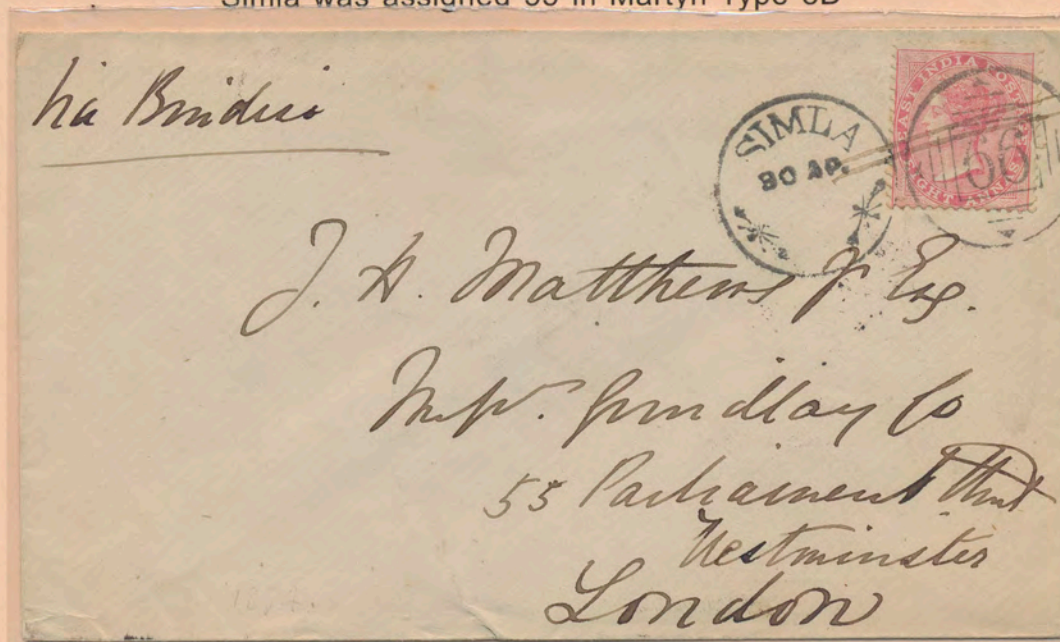 Simla was assigned 66 in Martyn Type 6B
via Brindisi
SIMLA
30 AP.
EAST INDIA POSTAGE
EIGHT ANNAS
66
J. H. Matthews Jr Esq.
Messrs. Grindlay Co
55 Parliament Street
Westminster
London